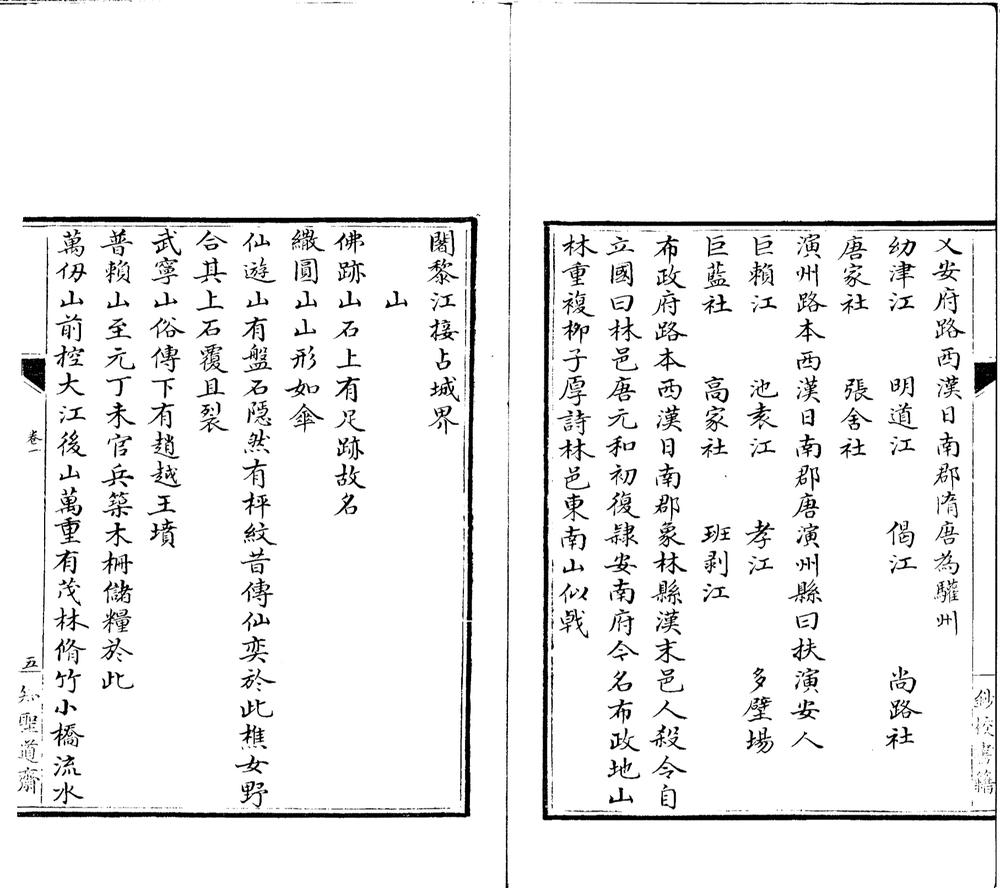 乂安府路西漢日南郡隋唐為驩州
幼津江　明道江　偈江　尚路社
唐家社　張舍社
演州路本西漢日南郡唐演州縣曰扶演安人
巨賴江　池袁江　孝江　多壁場
巨藍社　高家社　班剥江
布政府路本西漢日南郡象林縣漢末邑人殺令自
立國曰林邑唐元和初復隸安南府今名布政地山
林重複柳子厚詩林邑東南山似戟
鈔校書籍
闍黎江接占城界
山
佛跡山石上有足跡故名
繖圓山山形如傘
仙遊山有盤石隱然有枰紋昔傳仙奕於此樵女野
合其上石覆且裂
武寧山俗傳下有趙越王墳
普賴山至元丁未官兵築木柵儲糧於此
萬仭山前控大江後山萬重有茂林脩竹小橋流水
卷一
五
知聖道齋